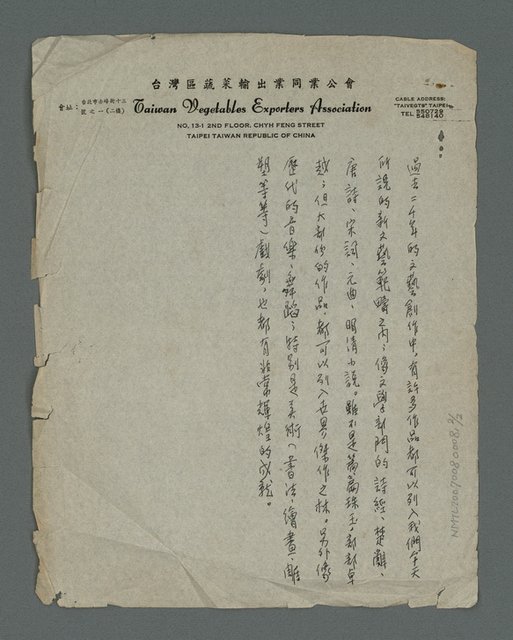 台灣區蔬菜輸出業同業公會
會址：台北市赤峰街十三號之一(二樓)
Taiwan Vegetables Exporters Association
NO. 13-1 2ND FLOOR, CHYH FENG STREET
TAIPEI TAIWAN REPUBLIC OF CHINA
CABLE ADDRESS:
"TAIVEGTS" TAIPEI
TEL.
過去二千年的文藝創作中，有許多作品都可以列入我們今天
所說的新文藝範疇之內；像文學部門的詩經、楚辭、
唐詩、宋詞、元曲、明清小說。雖不是篇篇珠玉，部部卓
越；但大部份的作品，都可以列入世界傑作之林。另外像
歷代的音樂、舞蹈；特別是美術（書法、繪畫、雕
塑等等）戲劇，也都有非常輝煌的成就。
NMTL20070080008 2/2